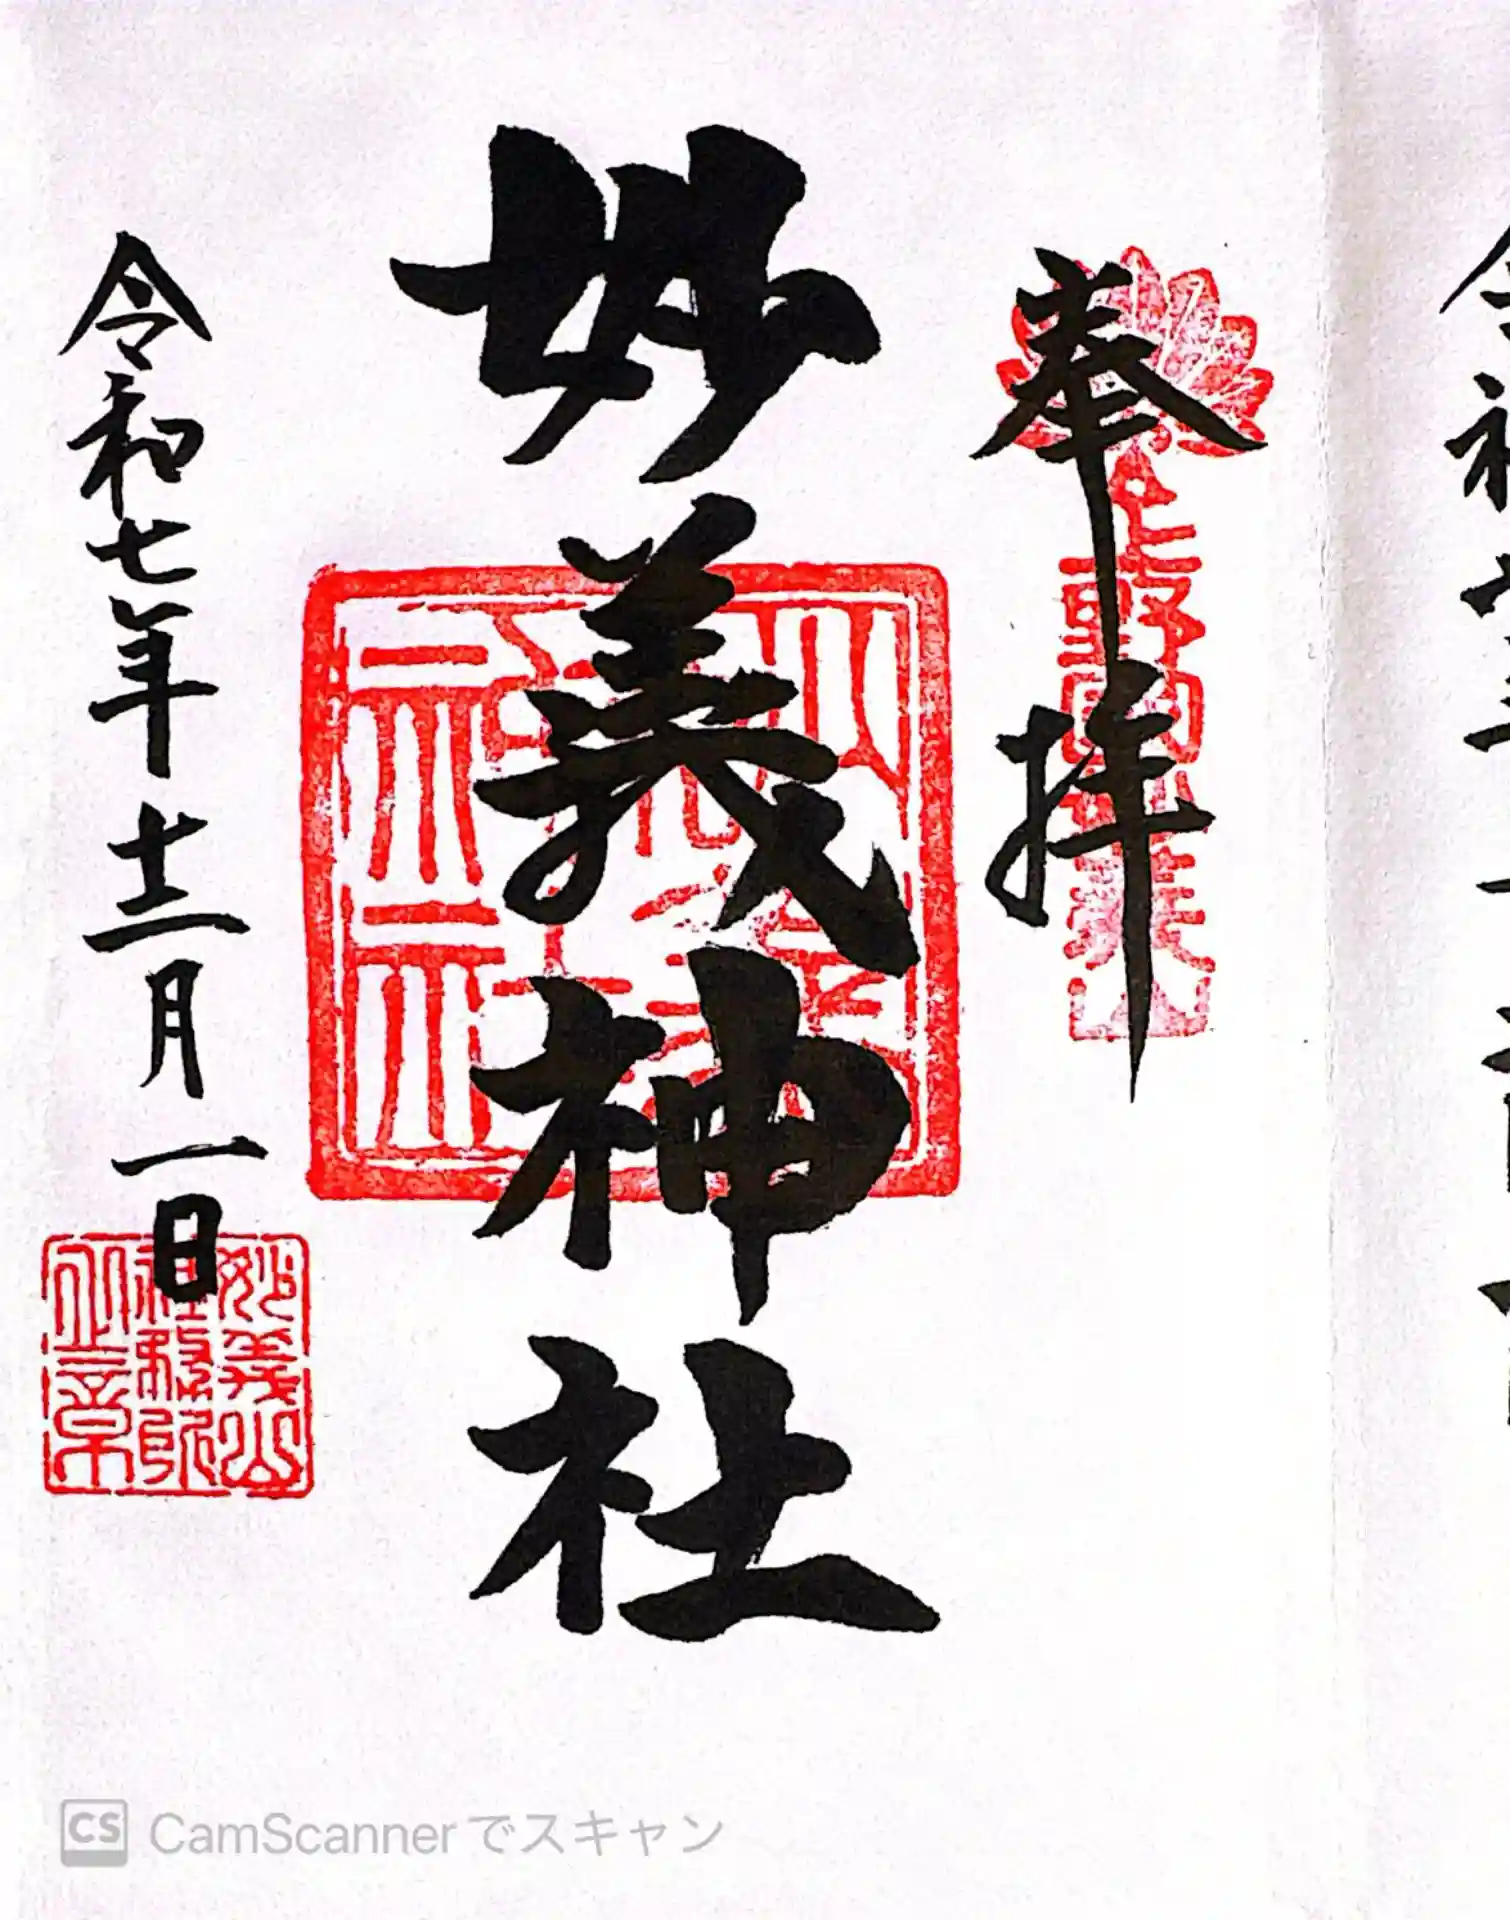 奉拝
上野國妙義山
妙義神社
妙義神社
令和七年十二月一日
妙義山
社務所
之章
CS CamScannerでスキャン